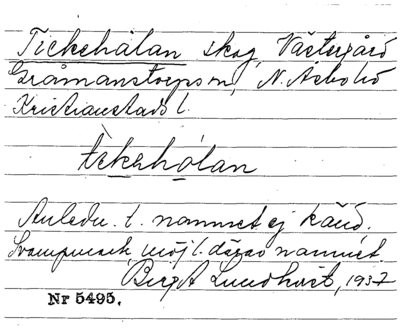 Tickehålan skog, Västergård
Gråmanstorps sn, N. Åsbo hd
Kristianstads l.
tekehålan
Anledn. t. namnet ej känd.
Svampmark, möjl. därav namnet.
Birgit Lundkvist, 1937
Nr 5495.